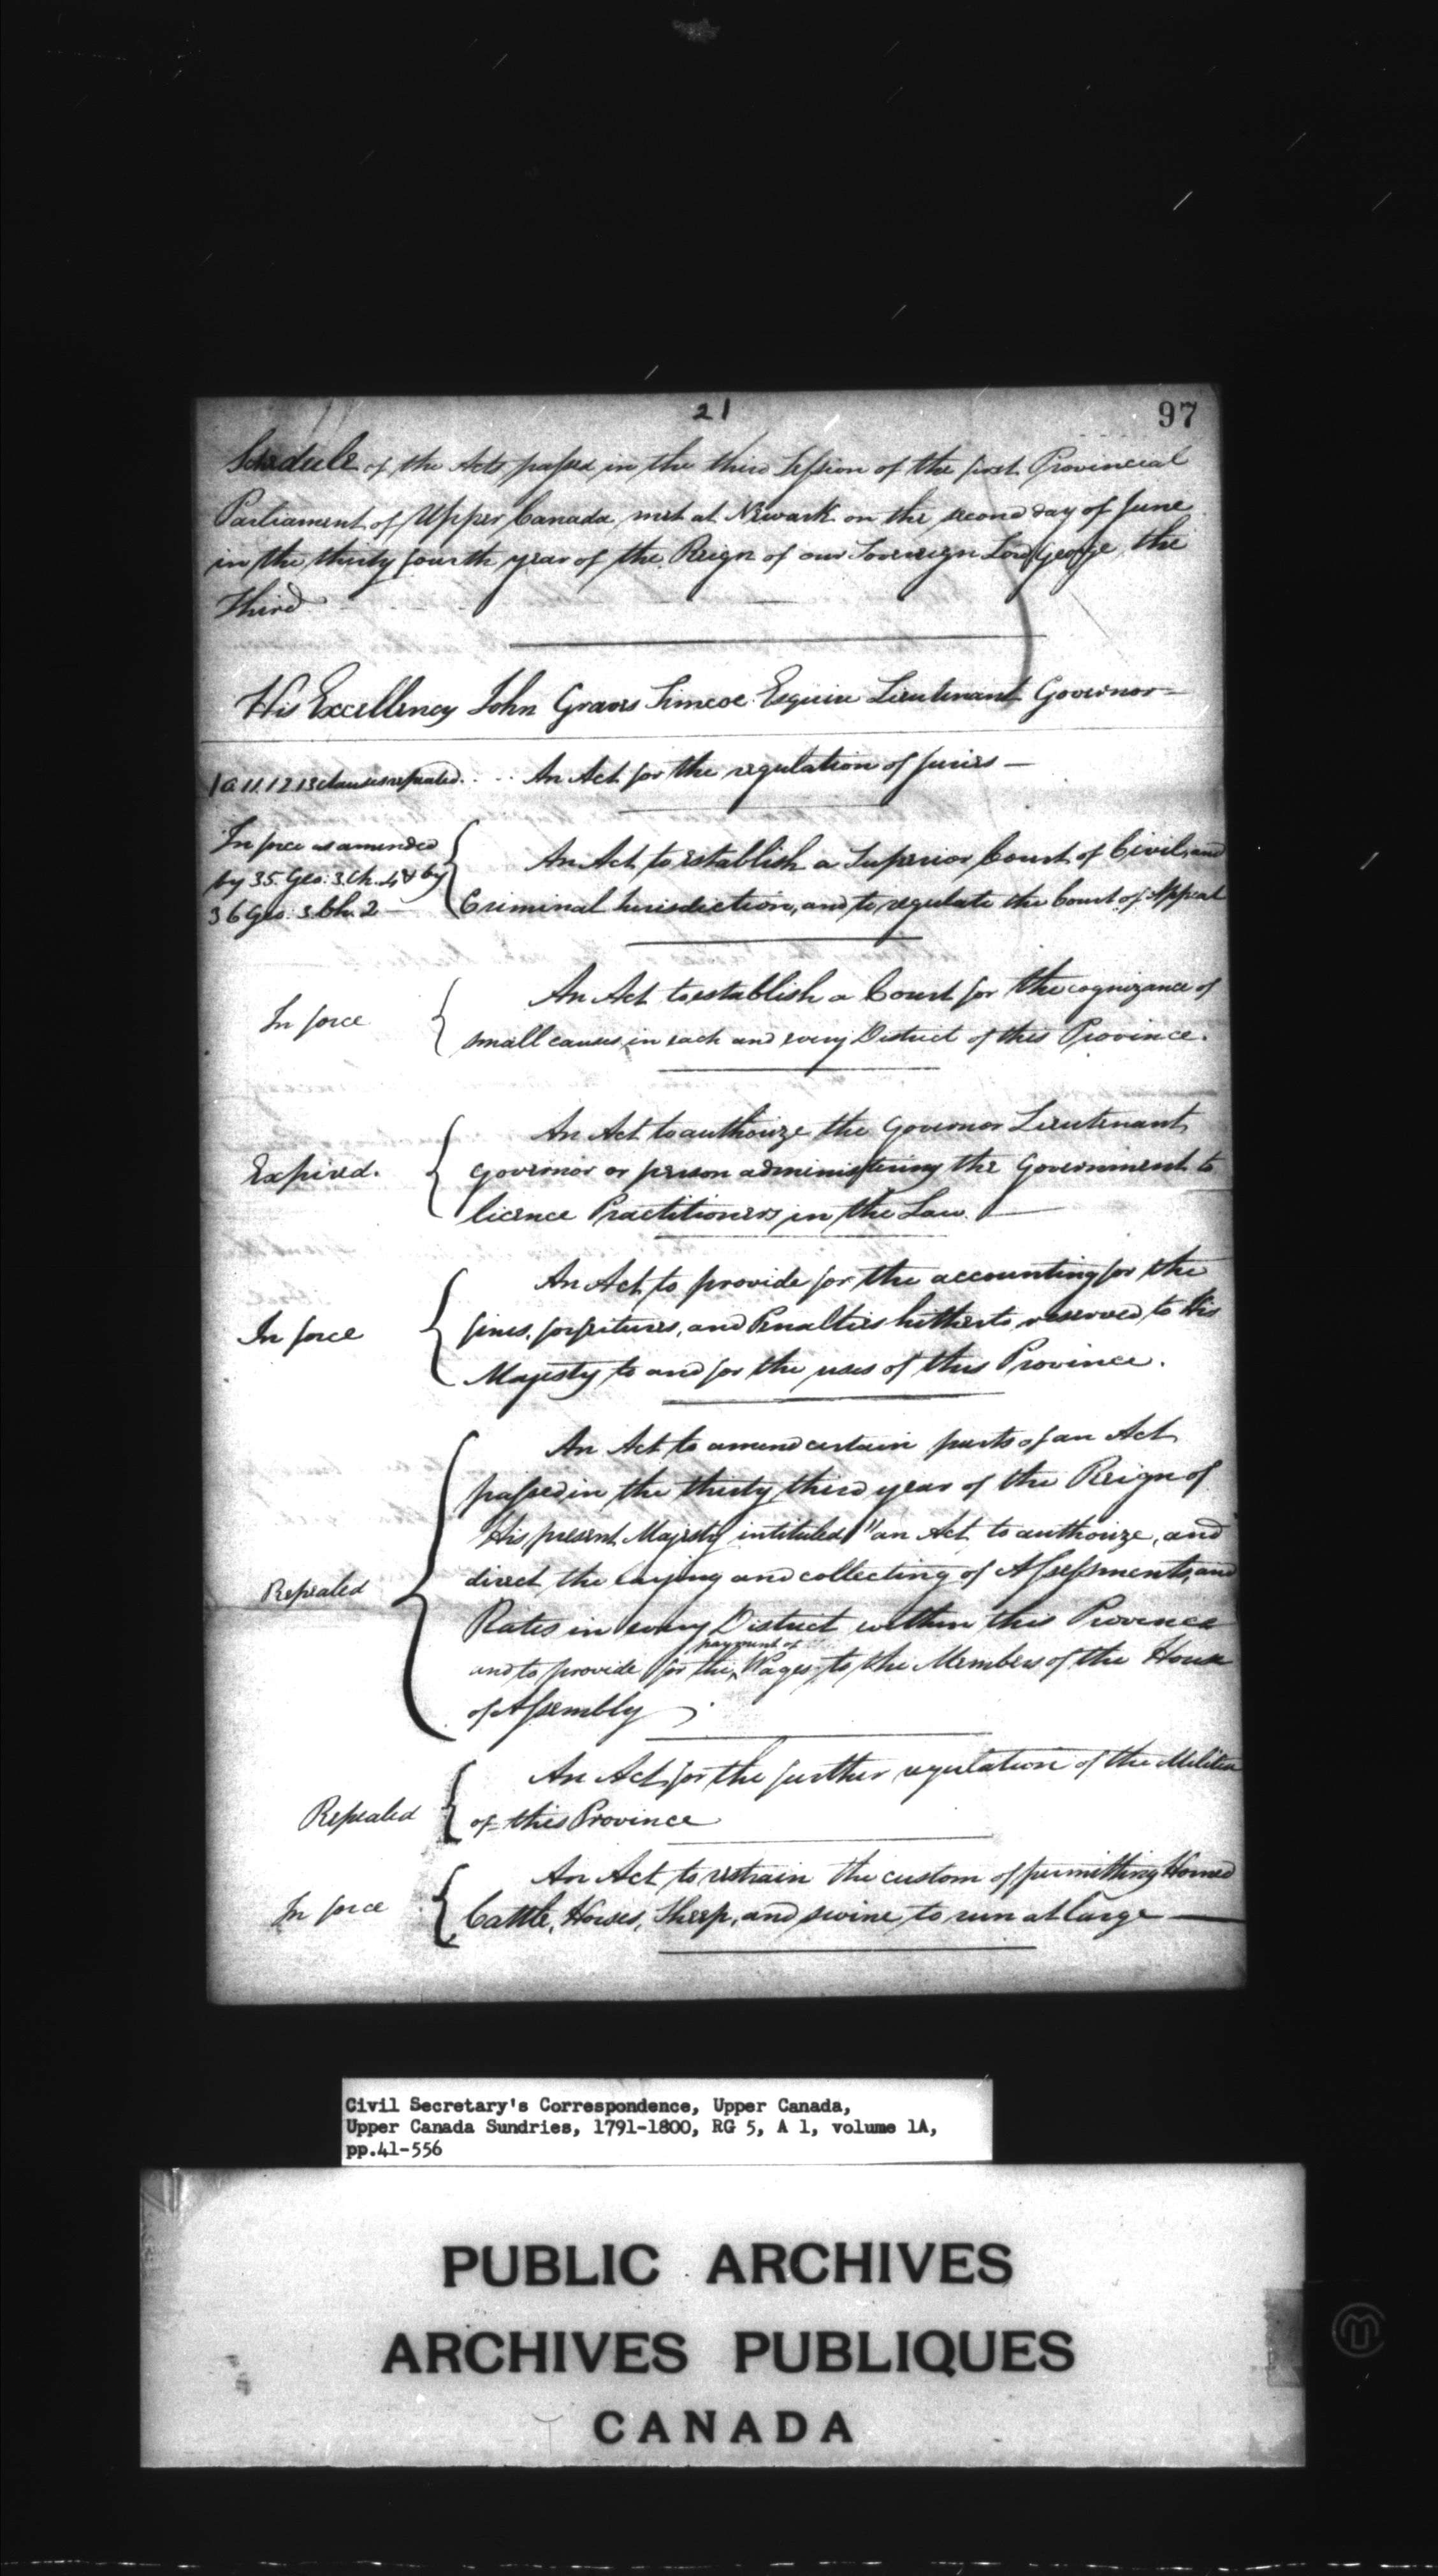 21
97
Schedule of the Acts passed in the third Session of the first Provincial
Parliament of Upper Canada, met at Newark on the second day of June
in the thirty fourth year of the Reign of our Sovereign Lord George the
Third
His Excellency John Graves Simcoe Esquire Lieutenant Governor
11.12.13 clauses repealed. An Act for the regulation of Juries
In force as amended
by 35. Geo. 3. Ch. 4 & by
36 Geo. 3. Ch. 2
An Act to establish a Superior Court of Civil, and
Criminal Jurisdiction, and to regulate the Court of Appeal
In force
An Act to establish a Court for the cognizance of
small causes, in each and every District of this Province.
Expired.
An Act to authorize the Governor Lieutenant
Governor or person administering the Government to
licence Practitioners in the Law.
In force
An Act to provide for the accounting for the
fines, forfeitures, and Penalties hitherto reserved to His
Majesty to and for the uses of this Province.
Repealed
An Act to amend certain parts of an Act
passed in the thirty third year of the Reign of
His present Majesty intituled "an Act to authorize, and
direct the laying and collecting of Assessments, and
Rates in every District within this Province
and to provide for the payment of Wages to the Members of the House
of Assembly
Repealed
An Act for the further regulation of the Militia
of this Province
In force
An Act to restrain the custom of permitting Horned
Cattle, Horses, Sheep, and swine to run at large
Civil Secretary's Correspondence, Upper Canada,
Upper Canada Sundries, 1791-1800, RG 5, A 1, volume 1A,
pp.41-556
PUBLIC ARCHIVES
ARCHIVES PUBLIQUES
CANADA